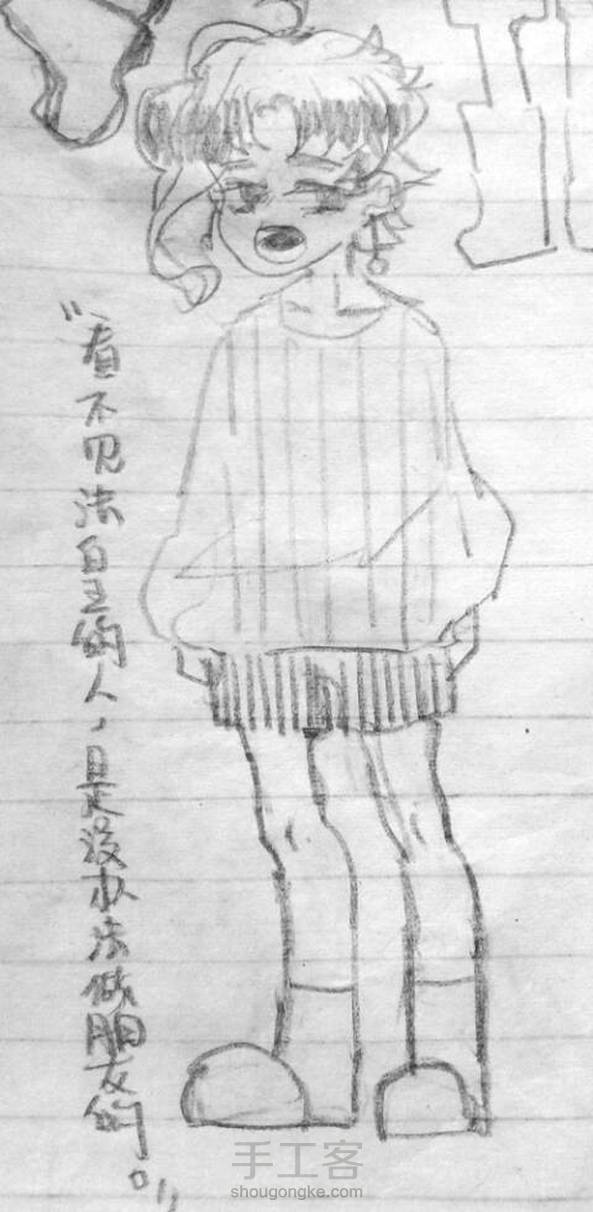 “看不见法自主的人，是没办法做朋友的。”
手工客
shougongke.com